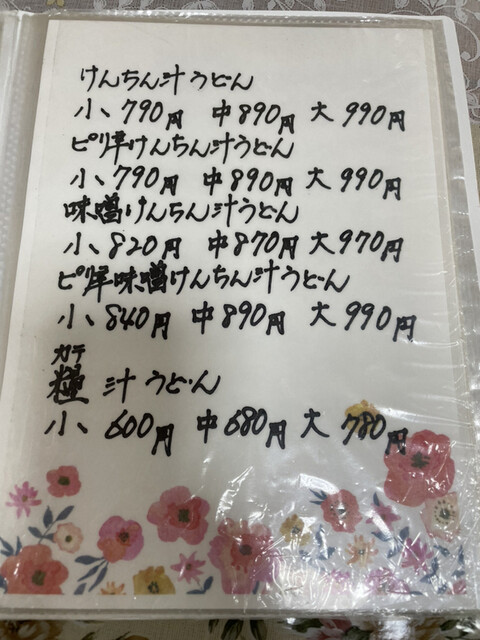 けんちん汁うどん
小、790円 中890円 大990円
ピリ辛けんちん汁うどん
小、790円 中890円 大990円
味噌けんちん汁うどん
小、820円 中870円 大970円
ピリ辛味噌けんちん汁うどん
小、840円 中890円 大990円
カテ
糧 汁うどん
小、600円 中680円 大780円